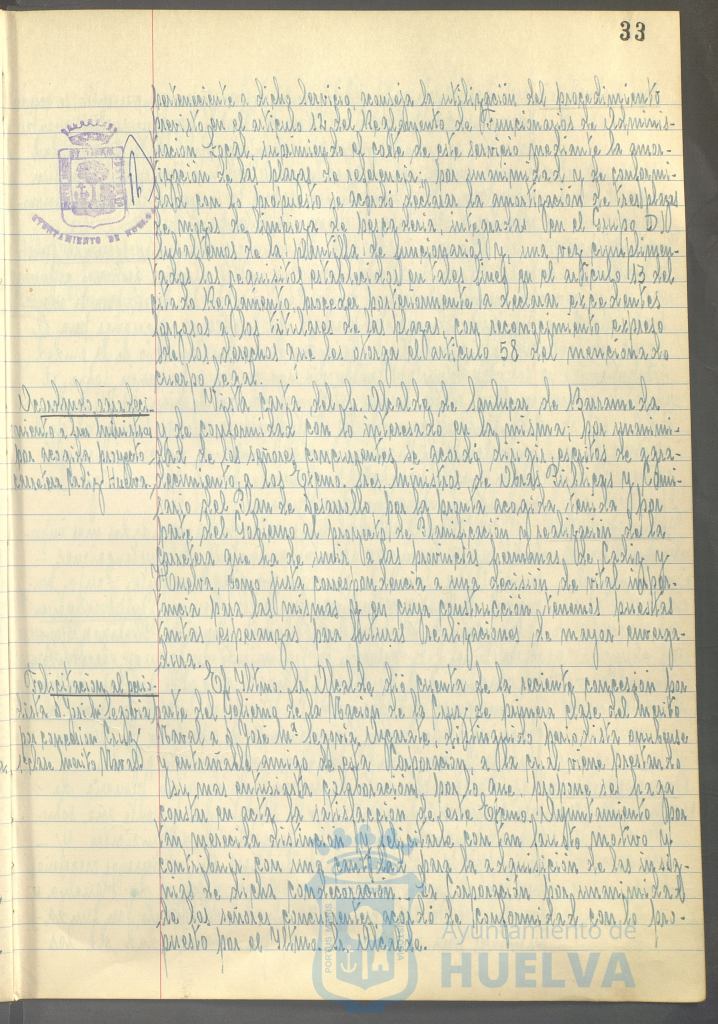 33
perteneciente a dicho Servicio aconseja la utilización del procedimiento
previsto en el artículo 12 del Reglamento de Funcionarios de Adminis-
tración Local, suprimiendo el coste de este servicio mediante la amor-
tización de las plazas de referencia; por unanimidad y de conformi-
dad con lo propuesto se acordó declarar la amortización de tres plazas
de mozos de limpieza de pescadería, integradas en el Grupo D)
subalternos de la plantilla de funcionarios y, una vez cumplimen-
tados los requisitos establecidos en tales fines en el artículo 13 del
citado Reglamento, proceder posteriormente a declarar excedentes
forzosos a los titulares de las plazas, con reconocimiento expreso
de los derechos que les otorga el artículo 58 del mencionado
cuerpo legal.
AYUNTAMIENTO DE HUELVA
Acordando agradeci-
miento a los Ministros
por acogida proyecto
carretera Cadiz Huelva.
Vista carta del Sr. Alcalde de Sanlucar de Barrameda
y de conformidad con lo interesado en la misma; por unanimi-
dad de los señores concurrentes se acordó dirigir escritos de agra-
decimiento a los Excmo. Sres. Ministros de Obras Públicas y Comi-
sario del Plan de Desarrollo, por la pronta acogida tenida por
parte del Gobierno al proyecto de Planificación y realización de la
carretera que ha de unir a las provincias hermanas de Cadiz y
Huelva, como justa correspondencia a una decisión de vital impor-
tancia para las mismas y en cuya construcción tenemos puestas
tantas esperanzas para futuras realizaciones de mayor enverga-
dura.
Felicitación al perio-
dista D. José Mª Segovia
por concesión Cruz
1ª clase Mérito Naval
El Iltmo. Sr. Alcalde dió cuenta de la reciente concesión por
parte del Gobierno de la Nación de la Cruz de primera clase del Merito
Naval a D. José Mª Segovia Azcarate, distinguido periodista onubense
y entrañable amigo de esta Corporación, a la cual viene prestando
su mas entusiasta colaboración, por lo que propone se haga
constar en acta la satisfacción de este Excmo. Ayuntamiento por
tan merecida distinción, felicitarle con tan fausto motivo y
contribuir con una cantidad para la adquisición de las insig-
nias de dicha condecoración. La Corporación por unanimidad
de los señores concurrentes acordó de conformidad con lo pro-
puesto por el Iltmo. Sr. Alcalde.
Ayuntamiento de
HUELVA